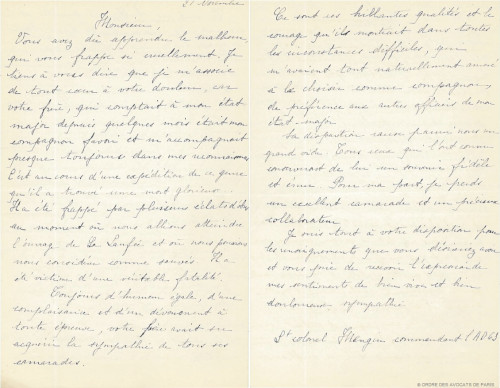 21 Novembre
Monsieur,
Vous avez dû apprendre le malheur
qui vous frappe si cruellement. Je
tiens à vous dire que je m'associe
de tout cœur à votre douleur, car
votre frère, qui comptait à mon état
major depuis quelques mois était mon
compagnon favori et m'accompagnait
presque toujours dans mes reconnaissances
C'est au cours d'une expédition de ce genre
qu'il a trouvé une mort glorieuse.
Il a été frappé par plusieurs éclats d'obus
au moment où nous allions atteindre
l'ouvrage de La et où nous pouvions
nous considérer comme sauvés. Il a
été victime d'une véritable fatalité.
Toujours d'humeur égale, d'une
complaisance et d'un dévouement à
toute épreuve, votre frère avait su
acquérir la sympathie de tous ses
camarades.
Ce sont ses brillantes qualités et le
courage qu'il montrait dans toutes
les circonstances difficiles, qui
m'avaient tout naturellement amené
à le choisir comme compagnon,
de préférence aux autres officiers de mon
état-major
Sa disparition laisse parmi nous un
grand vide. Tous ceux qui l'ont connu
conserveront de lui un souvenir fidèle
et ému. Pour ma part, je perds
un excellent camarade et un précieux
collaborateur
Je suis tout à votre disposition pour
les renseignements que vous désireriez avoir
et vous prie de recevoir l'expression de
mes sentiments de bien vive et bien
douloureuse sympathie.
Lt colonel Mangin commandant l'AD63
© ORDRE DES AVOCATS DE PARIS